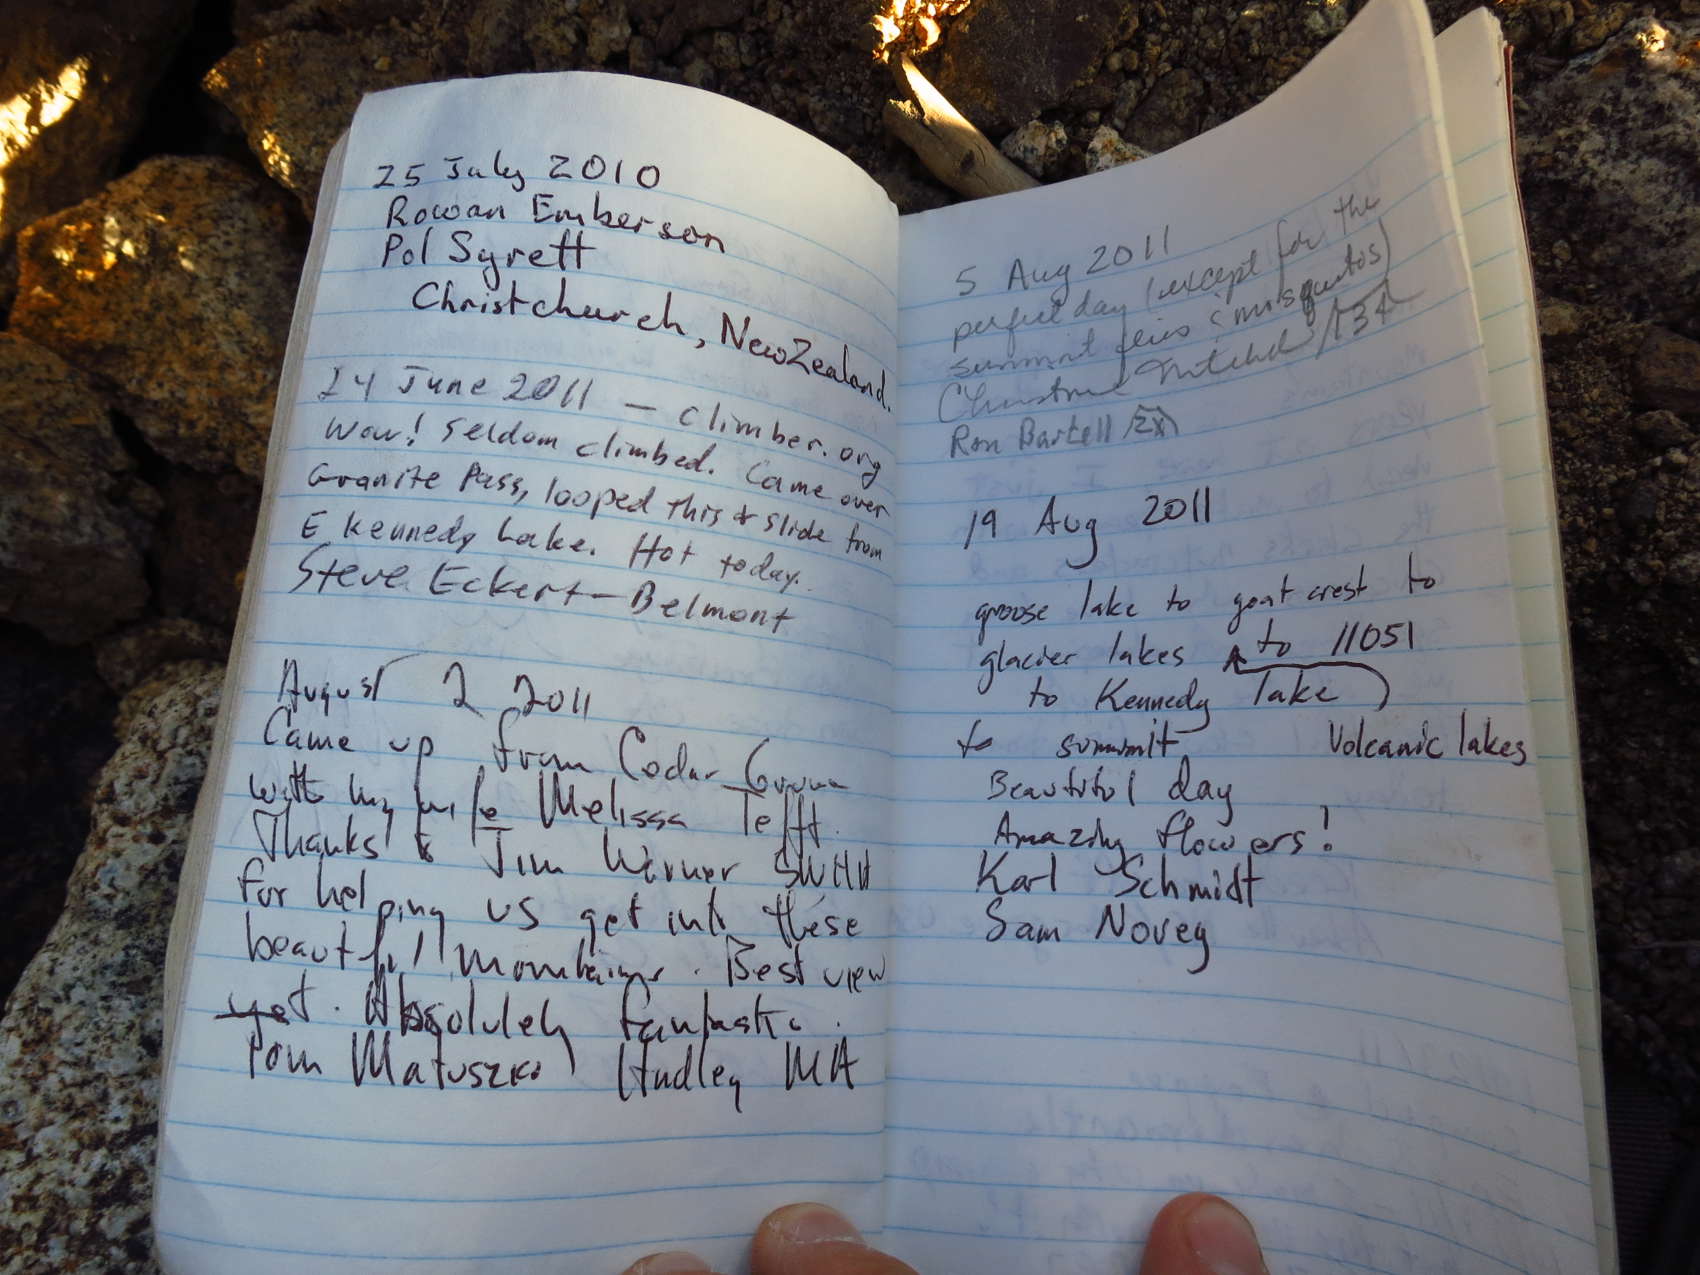 25 July 2010
Rowan Emberson
Pol Syrett
Christchurch, New Zealand.
24 June 2011 — climber.org
Wow! Seldom climbed. Came over
Granite Pass, looped this & slide from
E Kennedy Lake. Hot today.
Steve Eckert — Belmont
August 2 2011
Came up from Cedar Grove
with my wife Melissa Tefft.
Thanks to Jim Werner SWHH
for helping us get into these
beautiful mountains. Best view
yet. Absolutely fantastic.
Tom Matuszko Hadley MA
5 Aug 2011
perfect day (except for the
summit flies & mosquitos)
Christine Mitchell /134
Ron Bartell
19 Aug 2011
groose lake to goat crest to
glacier lakes to 11051
to Kennedy lake
to summit Volcanic lakes
Beautiful day
Amazing flowers!
Karl Schmidt
Sam Novey